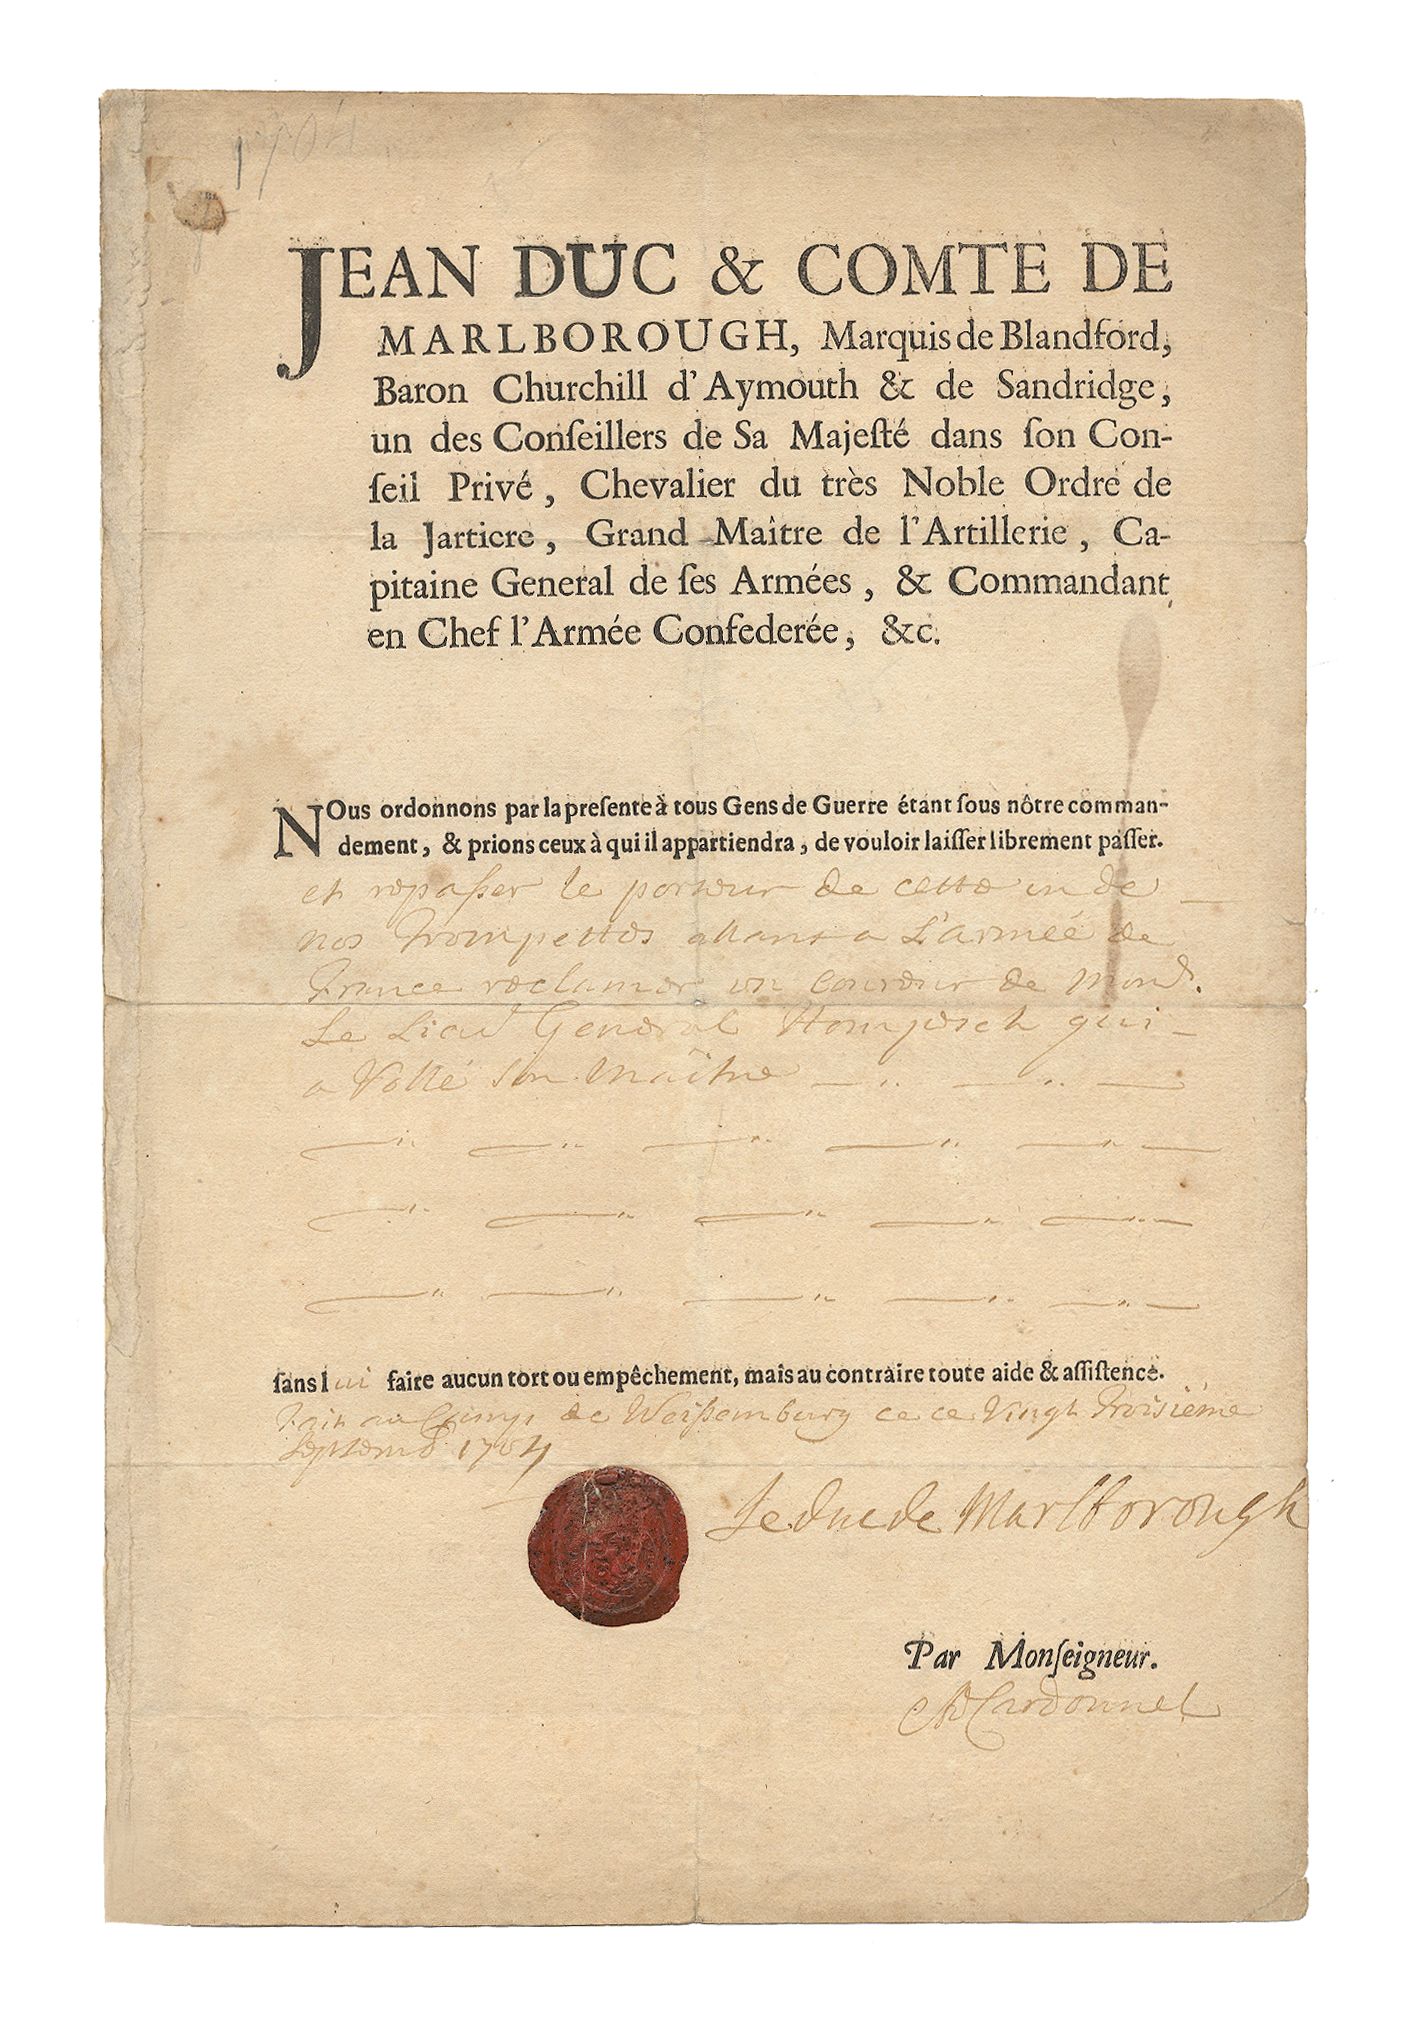 1704
JEAN DUC & COMTE DE
MARLBOROUGH, Marquis de Blandford,
Baron Churchill d'Aymouth & de Sandridge,
un des Conſeillers de Sa Majeſté dans ſon Con-
ſeil Privé, Chevalier du très Noble Ordre de
la Jartiere, Grand Maître de l'Artillerie, Ca-
pitaine General de ſes Armées, & Commandant
en Chef l'Armée Confederée, &c.
NOus ordonnons par la preſente à tous Gens de Guerre étant ſous nôtre comman-
dement, & prions ceux à qui il appartiendra, de vouloir laiſſer librement paſſer.
et repaſser le porteur de cette un de
nos Trompettes allant a L'armée de
France reclamer un Coureur de Monsr.
Le Lieut General Hompesch qui
a Vollé son Maître
ſans lui faire aucun tort ou empêchement, maîs au contraire toute aide & aſſiſtence.
Fait au Camp de Weiſsemburg ce ce Vingt Troisiéme
Septemb 1704
Le duc de Marlborough
Par Monſeigneur.
ADCardonnel